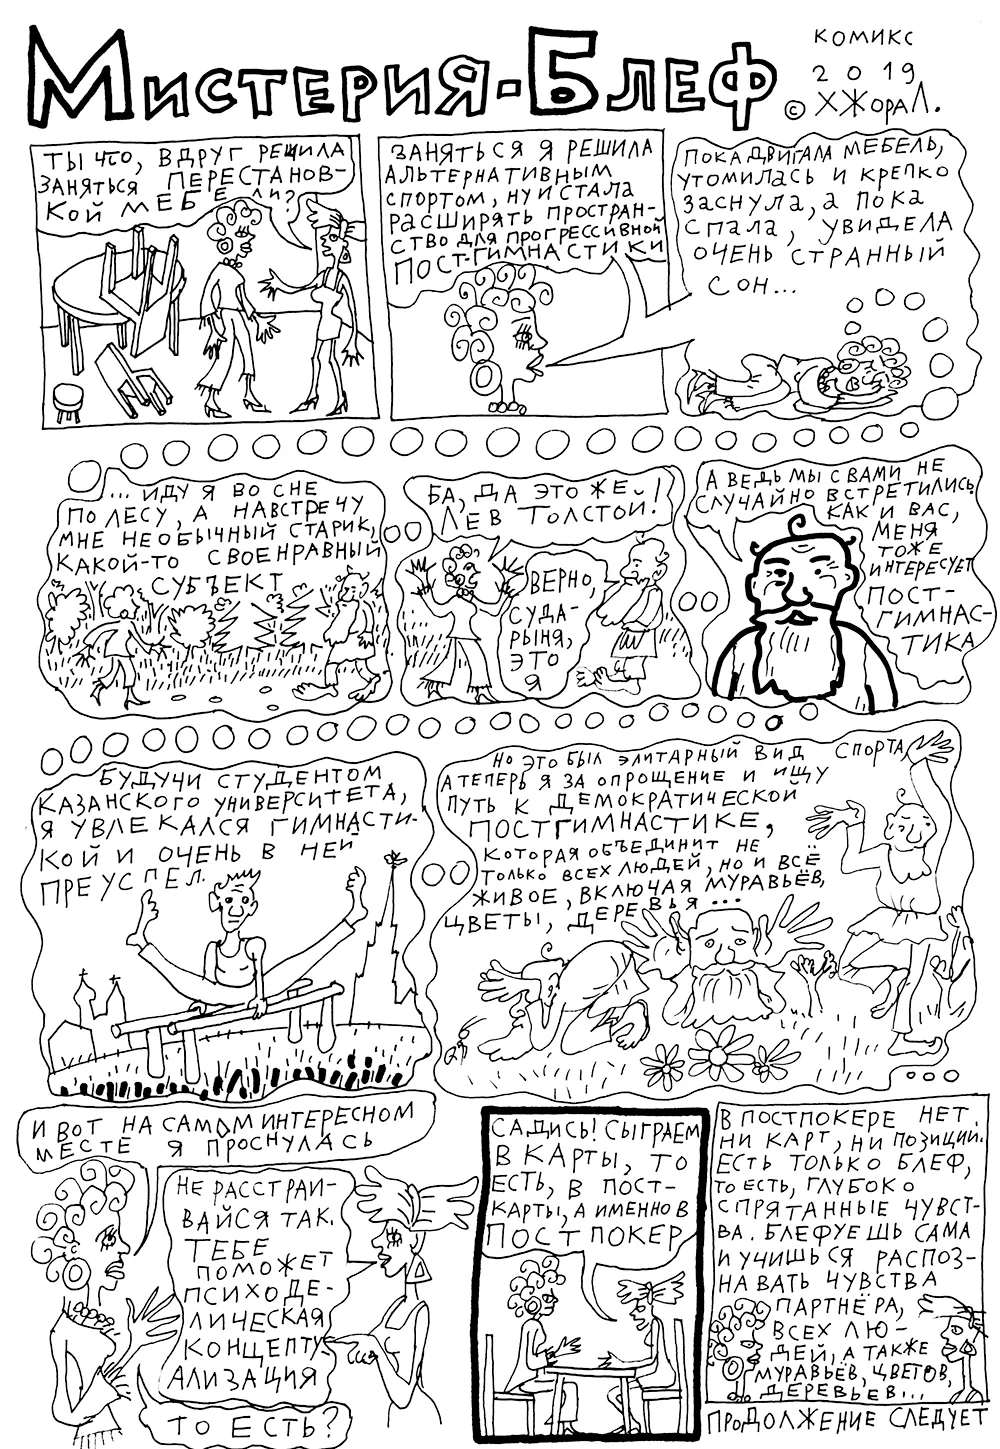 Мистерия-Блеф
комикс
2019
© ХЖораЛ.
Ты что, вдруг решила
заняться перестанов-
кой мебели?
Заняться я решила
альтернативным
спортом, ну и стала
расширять простран-
ство для прогрессивной
пост-гимнастики
Пока двигала мебель,
утомилась и крепко
заснула, а пока
спала, увидела
очень странный
сон...
...Иду я во сне
по лесу, а навстречу
мне необычный старик,
какой-то своенравный
субъект
Ба, да это же
Лев Толстой!
Верно,
суда-
рыня,
это
я
А ведь мы с вами не
случайно встретились.
Как и вас,
меня
тоже
интересует
пост-
гимнас-
тика
Будучи студентом
Казанского университета,
я увлекался гимнасти-
кой и очень в ней
преуспел.
Но это был элитарный вид спорта,
а теперь я за опрощение и ищу
путь к демократической
постгимнастике,
которая объединит не
только всех людей, но и всё
живое, включая муравьёв,
цветы, деревья...
И вот на самом интересном
месте я проснулась
Не расстраи-
вайся так.
Тебе
поможет
психоде-
лическая
концепту-
ализация
То есть?
Садись! Сыграем
в карты, то
есть, в пост-
карты, а именно в
постпокер
В постпокере нет
ни карт, ни позиций.
Есть только блеф,
то есть, глубоко
спрятанные чувст-
ва. Блефуешь сама
и учишься распоз-
навать чувства
партнёра,
всех лю-
дей, а также
муравьёв, цветов,
деревьев...
Продолжение следует